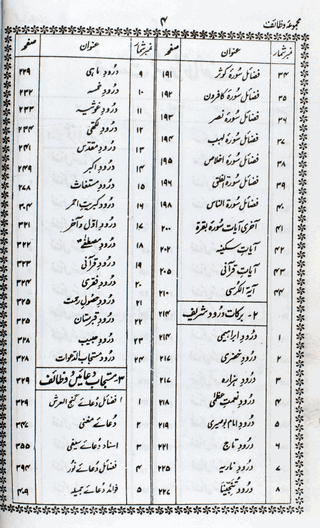 مجموعہ وظائف
۴
نمبر شمار عنوان صفحہ
۳۴ فضائل سورۂ کوثر ۱۹۱
۳۵ فضائل سورۂ کافرون ۱۹۲
۳۶ فضائل سورۂ نصر ۱۹۳
۳۷ فضائل سورۂ لہب ۱۹۴
۳۸ فضائل سورۂ اخلاص ۱۹۵
۳۹ فضائل سورۂ الفلق ۱۹۶
۴۰ فضائل سورۂ الناس ۱۹۸
۴۱ آخری آیات سورۂ بقرہ ۲۰۰
۴۲ آیات سکینہ ۲۰۲
۴۳ آیات قرآنی ۲۰۵
۴۴ آیۃ الکرسی ۲۱۰
۲- برکات درود شریف ۲۱۴
۱ درود ابراہیمی ۲۱۴
۲ درود خضری ۲۱۷
۳ درود ہزارہ ۲۱۷
۴ درود نعمت عظمیٰ ۲۱۸
۵ درود امام بوصیری ۲۱۹
۶ درود تاج ۲۲۱
۷ درود ناریہ ۲۲۵
۸ درود تنجینا ۲۲۷
نمبر شمار عنوان صفحہ
۹ درود ماہی ۲۲۹
۱۰ درود خمسہ ۲۳۲
۱۱ درود غوثیہ ۲۳۳
۱۲ درود لکھی ۲۳۴
۱۳ درود مقدس ۲۴۱
۱۴ درود اکبر ۲۴۹
۱۵ درود مستغاث ۲۷۸
۱۶ درود کبریت احمر ۳۰۴
۱۷ درود اول و آخر ۳۲۱
۱۸ درود مصطفےٰ ۳۲۲
۱۹ درود قرآنی ۳۲۳
۲۰ درود فقری ۳۲۴
۲۱ درود حصول رحمت ۳۲۵
۲۲ درود قبرستان ۳۲۵
۲۳ درود حبیب ۳۲۸
۲۴ درود مستجاب الدعوات ۳۲۸
۳- مستجاب دعائیں و وظائف ۳۲۹
۱ فضائل دعائے گنج العرش ۳۲۹
۲ دعائے مغنی ۳۴۷
۳ اسناد دعائے سیفی ۳۵۵
۴ فضائل دعائے نور ۳۹۴
۵ فوائد دعائے جمیلہ ۴۰۹